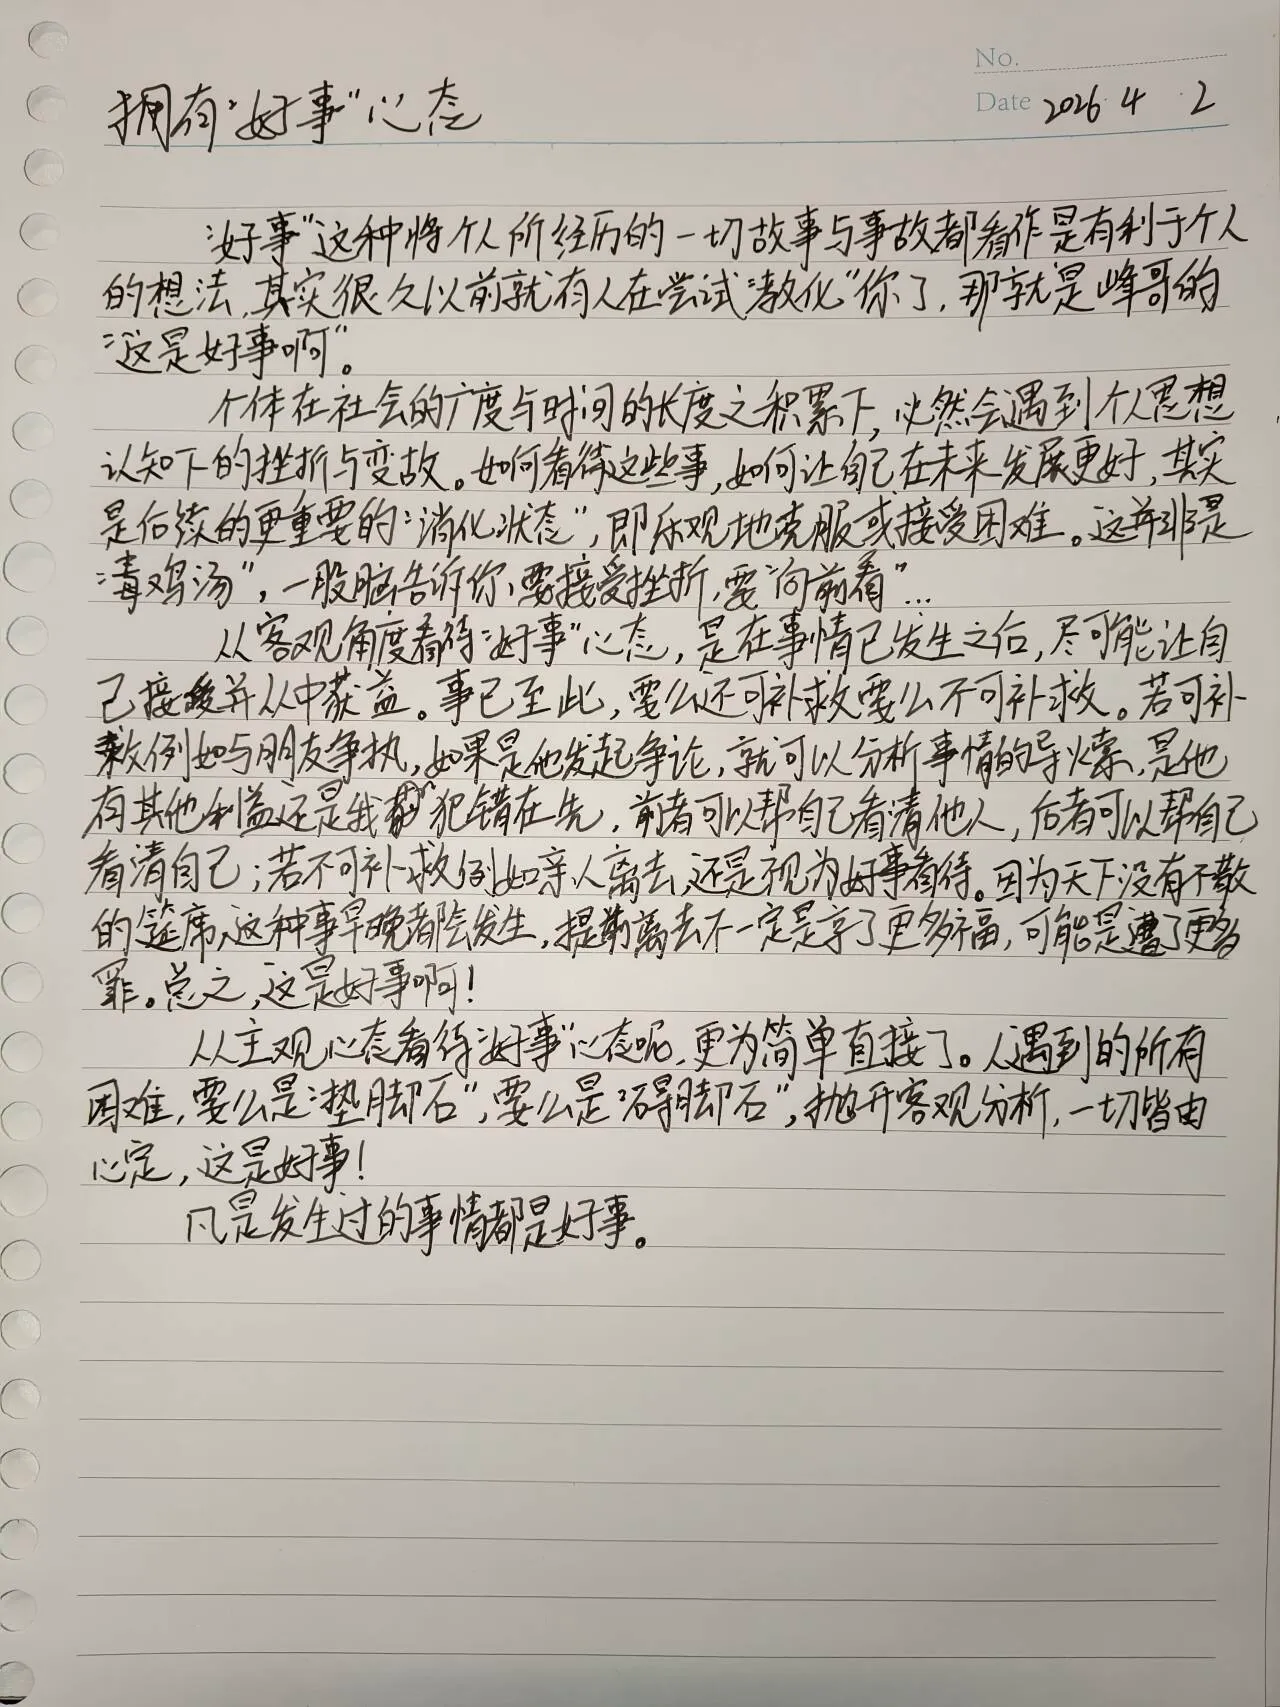 No.
Date 2026 4 2
拥有“好事”心态
“好事”这种将个人所经历的一切故事与事故都看作是有利于个人
的想法,其实很久以前就有人在尝试“教化”你了,那就是峰哥的
“这是好事啊”。
个体在社会的广度与时间的长度之积累下,必然会遇到个人思想
认知下的挫折与变故。如何看待这些事,如何让自己在未来发展更好,其实
是后续的更重要的“消化状态”,即乐观地克服或接受困难。这并非是
“毒鸡汤”,一股脑告诉你,要接受挫折,要“向前看”…
从客观角度看待“好事”心态,是在事情已发生之后,尽可能让自
己接受并从中获益。事已至此,要么还可补救要么不可补救。若可补
救例如与朋友争执,如果是他发起争论,就可以分析事情的导火索,是他
有其他利益还是我犯错在先,前者可以帮自己看清他人,后者可以帮自己
看清自己;若不可补救例如亲人离去,还是视为好事看待。因为天下没有不散
的筵席,这种事早晚都会发生,提前离去不一定是享了更多福,可能是遭了更多
罪。总之,这是好事啊!
从主观心态看待“好事”心态呢,更为简单直接了。人遇到的所有
困难,要么是“垫脚石”,要么是“碍脚石”,抛开客观分析,一切皆由
心定,这是好事!
凡是发生过的事情都是好事。